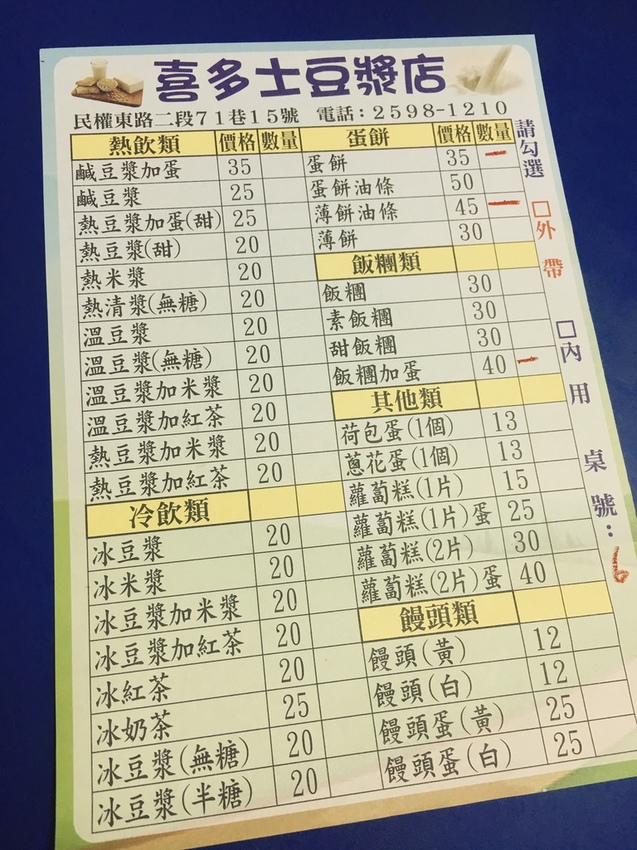 喜多士豆漿店
民權東路二段71巷15號 電話：2598-1210
熱飲類 價格 數量
鹹豆漿加蛋 35
鹹豆漿 25
熱豆漿加蛋(甜) 25
熱豆漿(甜) 20
熱米漿 20
熱清漿(無糖) 20
溫豆漿 20
溫豆漿(無糖) 20
溫豆漿加米漿 20
溫豆漿加紅茶 20
熱豆漿加米漿 20
熱豆漿加紅茶 20
冷飲類
冰豆漿 20
冰米漿 20
冰豆漿加米漿 20
冰豆漿加紅茶 20
冰紅茶 20
冰奶茶 25
冰豆漿(無糖) 20
冰豆漿(半糖) 20
蛋餅 價格 數量
蛋餅 35 一
蛋餅油條 50
薄餅油條 45 一
薄餅 30
飯糰類
飯糰 30
素飯糰 30
甜飯糰 30
飯糰加蛋 40 一
其他類
荷包蛋(1個) 13
蔥花蛋(1個) 13
蘿蔔糕(1片) 15
蘿蔔糕(1片)蛋 25
蘿蔔糕(2片) 30
蘿蔔糕(2片)蛋 40
饅頭類
饅頭(黃) 12
饅頭(白) 12
饅頭蛋(黃) 25
饅頭蛋(白) 25
請勾選 □外帶 □內用 桌號：6